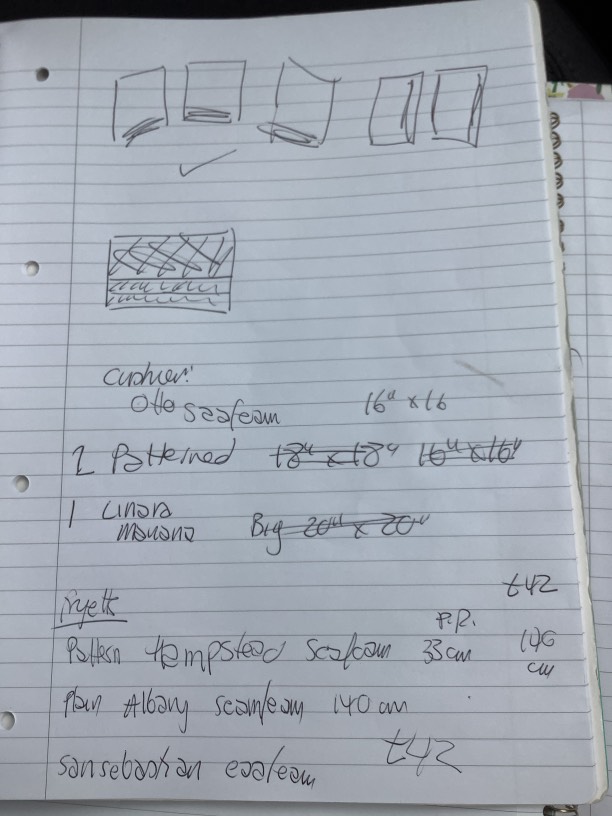 Cushion:
Otto seafoam 16" x 16
2 Patterned 18" x 18" 16" x 16"
1 Linara
Big 20" x 20"
t42
Fryett
P.R.
Pattern Hempstead Seafoam 33 cm 140 cm
Plain Albany seamfeam 140 cm
sansebastian eoafeam t42